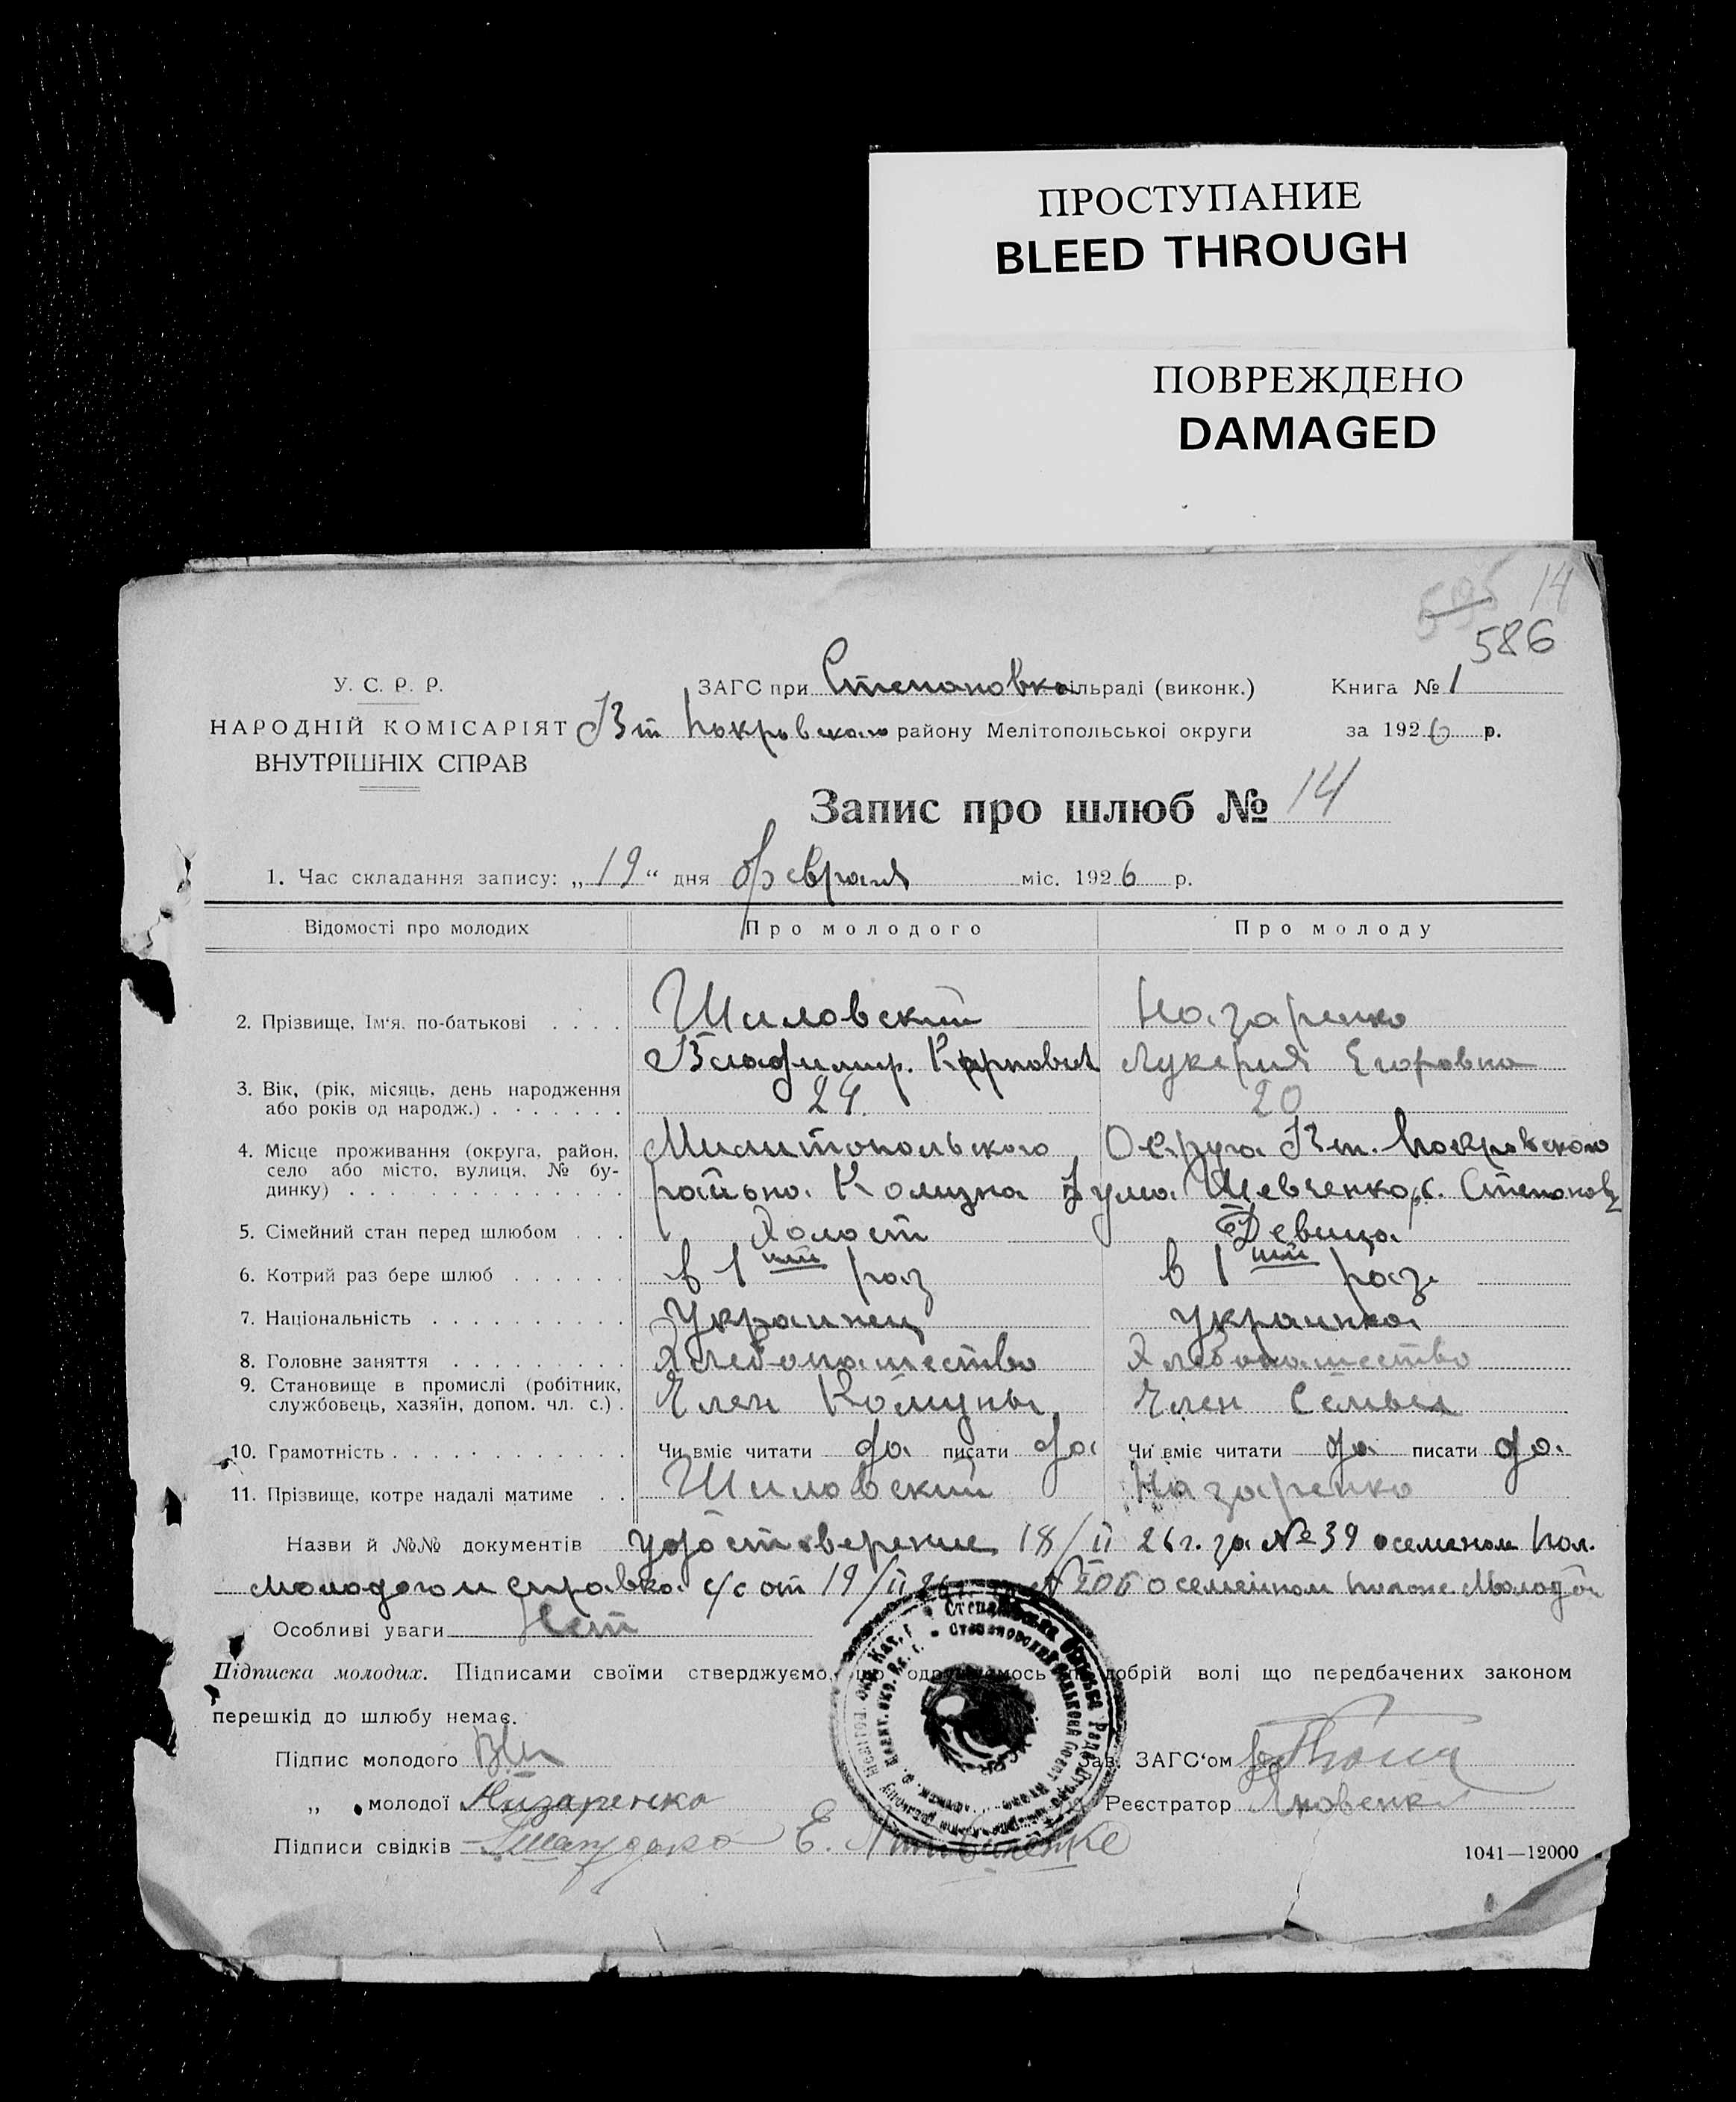 ПРОСТУПАНИЕ
BLEED THROUGH
ПОВРЕЖДЕНО
DAMAGED
595 14
586
У. С. Р. Р.
НАРОДНІЙ КОМІСАРІЯТ
ВНУТРІШНІХ СПРАВ
ЗАГС при Степановка сільраді (виконк.) Книга № 1
Вт Покровского району Мелітопольської округи за 1926 р.
Запис про шлюб № 14
1. Час складання запису: „19“ дня февраля міс. 1926 р.
Відомості про молодих Про молодого Про молоду
2. Прізвище, Ім‘я, по-батькові . . . . Шиловский Назаренко
Владимир. Карпович Лукерия Егоровна
3. Вік, (рік, місяць, день народження
або років од народж.) . . . . . . . 24. 20
4. Місце проживання (округа, район,
село або місто, вулиця, № бу-
динку) . . . . . . . . . . . . . .
Милитопольского Округа Вт. Покровского
района. Шевченко, с. Степановк
5. Сімейний стан перед шлюбом . . . Холост Девица
6. Котрий раз бере шлюб . . . . . . в 1 ый раз в 1 ый раз
7. Національність . . . . . . . . . . Украинец украинка
8. Головне заняття . . . . . . . . . Хлебопашество Хлебопашество
9. Становище в промислі (робітник,
службовець, хазяїн, допом. чл. с.) . Член Комуны Член Семьи
10. Грамотність . . . . . . . . . . . . Чи вміє читати да писати да Чи вміє читати да писати да
11. Прізвище, котре надалі матиме . . Шиловский Назаренко
Назви й №№ документів удостоверение 18/II 26 г. за № 39 о семейном пол.
молодого и справка с/с от 19/II 26 г. о семейном полож. Молодой
Особливі уваги Нет
Підписка молодих. Підписами своїми стверджуємо, що одружуємось по добрій волі що передбачених законом
перешкід до шлюбу немає.
Підпис молодого Зав. ЗАГС‘ом
„ молодої Назаренко Реєстратор Яковенко
Підписи свідків Е.
1041—12000